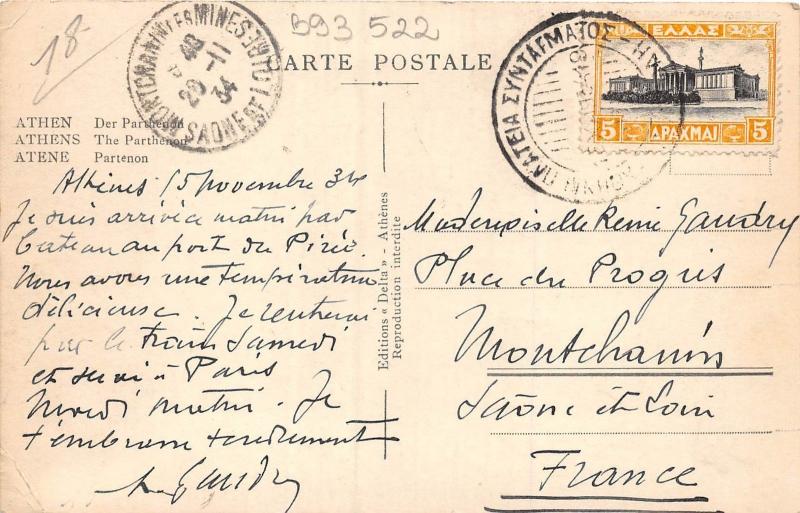 18
B93 522
CARTE POSTALE
ΕΛΛΑΣ
5 ΔΡΑΧΜΑΙ 5
ΠΛΑΤΕΙΑ ΣΥΝΤΑΓΜΑΤΟΣ
MONTCHANIN LES MINES
SAONE ET LOIRE
34
ATHEN Der Parthenon
ATHENS The Parthenon
ATENE Partenon
Athènes 15 novembre 34
Je suis arrivé ce matin par
bateau au port du Pirée.
Nous avons une température
délicieuse. Je rentrerai
par le train Samedi
et serai à Paris
Mardi matin. Je
t'embrasse tendrement
Gaudry
Editions « Delta » - Athènes
Reproduction interdite
Mademoiselle Renée Gaudry
Place du Progrès
Montchanin
Saône et Loire
France